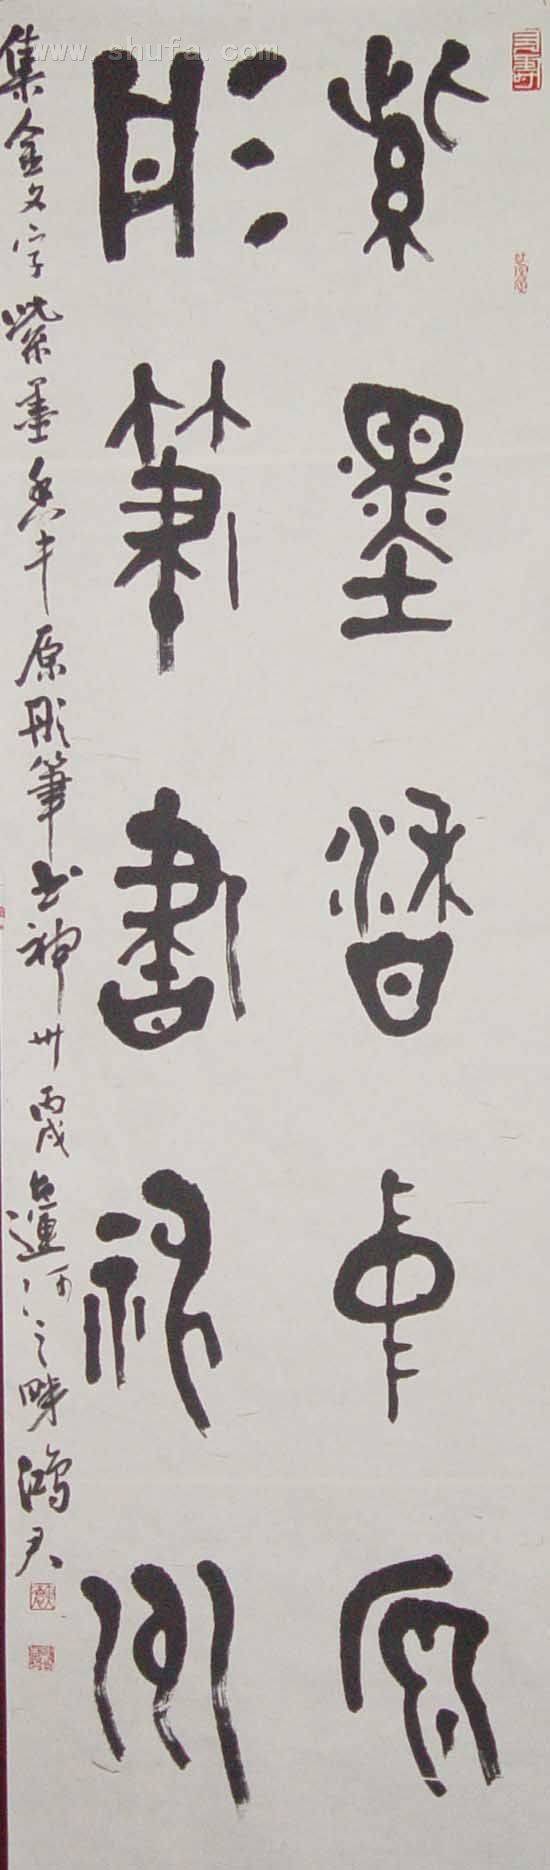 www.shufa.com
紫墨香中原
彤筆書神州
集金文字紫墨香中原彤筆书神州丙戌運河之畔鴻君